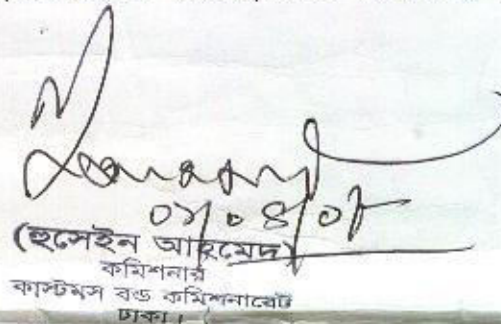 ০১/০৪/০৮
(হুসেইন আহমেদ)
কমিশনার
কাস্টমস বন্ড কমিশনারেট
ঢাকা।